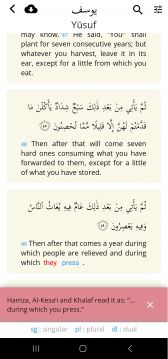 يوسف
Yūsuf
may know." 47 He said, "You pl shall
plant for seven consecutive years; but
whatever you harvest, leave it in its
ear, except for a little from which you
eat.
ثُمَّ يَأْتِي مِنۢ بَعْدِ ذَٰلِكَ سَبْعٌ شِدَادٌ يَأْكُلْنَ مَا
قَدَّمْتُمْ لَهُنَّ إِلَّا قَلِيلًا مِّمَّا تُحْصِنُونَ ٤٨
48 Then after that will come seven
hard ones consuming what you have
forwarded to them, except for a little
of what you have stored.
ثُمَّ يَأْتِي مِنۢ بَعْدِ ذَٰلِكَ عَامٌ فِيهِ يُغَاثُ ٱلنَّاسُ
وَفِيهِ يَعْصِرُونَ ٤٩
49 Then after that comes a year during
which people are relieved and during
which they press .
Hamza, Al-Kesa'i and Khalaf read it as: "...
during which you press."
sg : singular pl : plural dl : dual